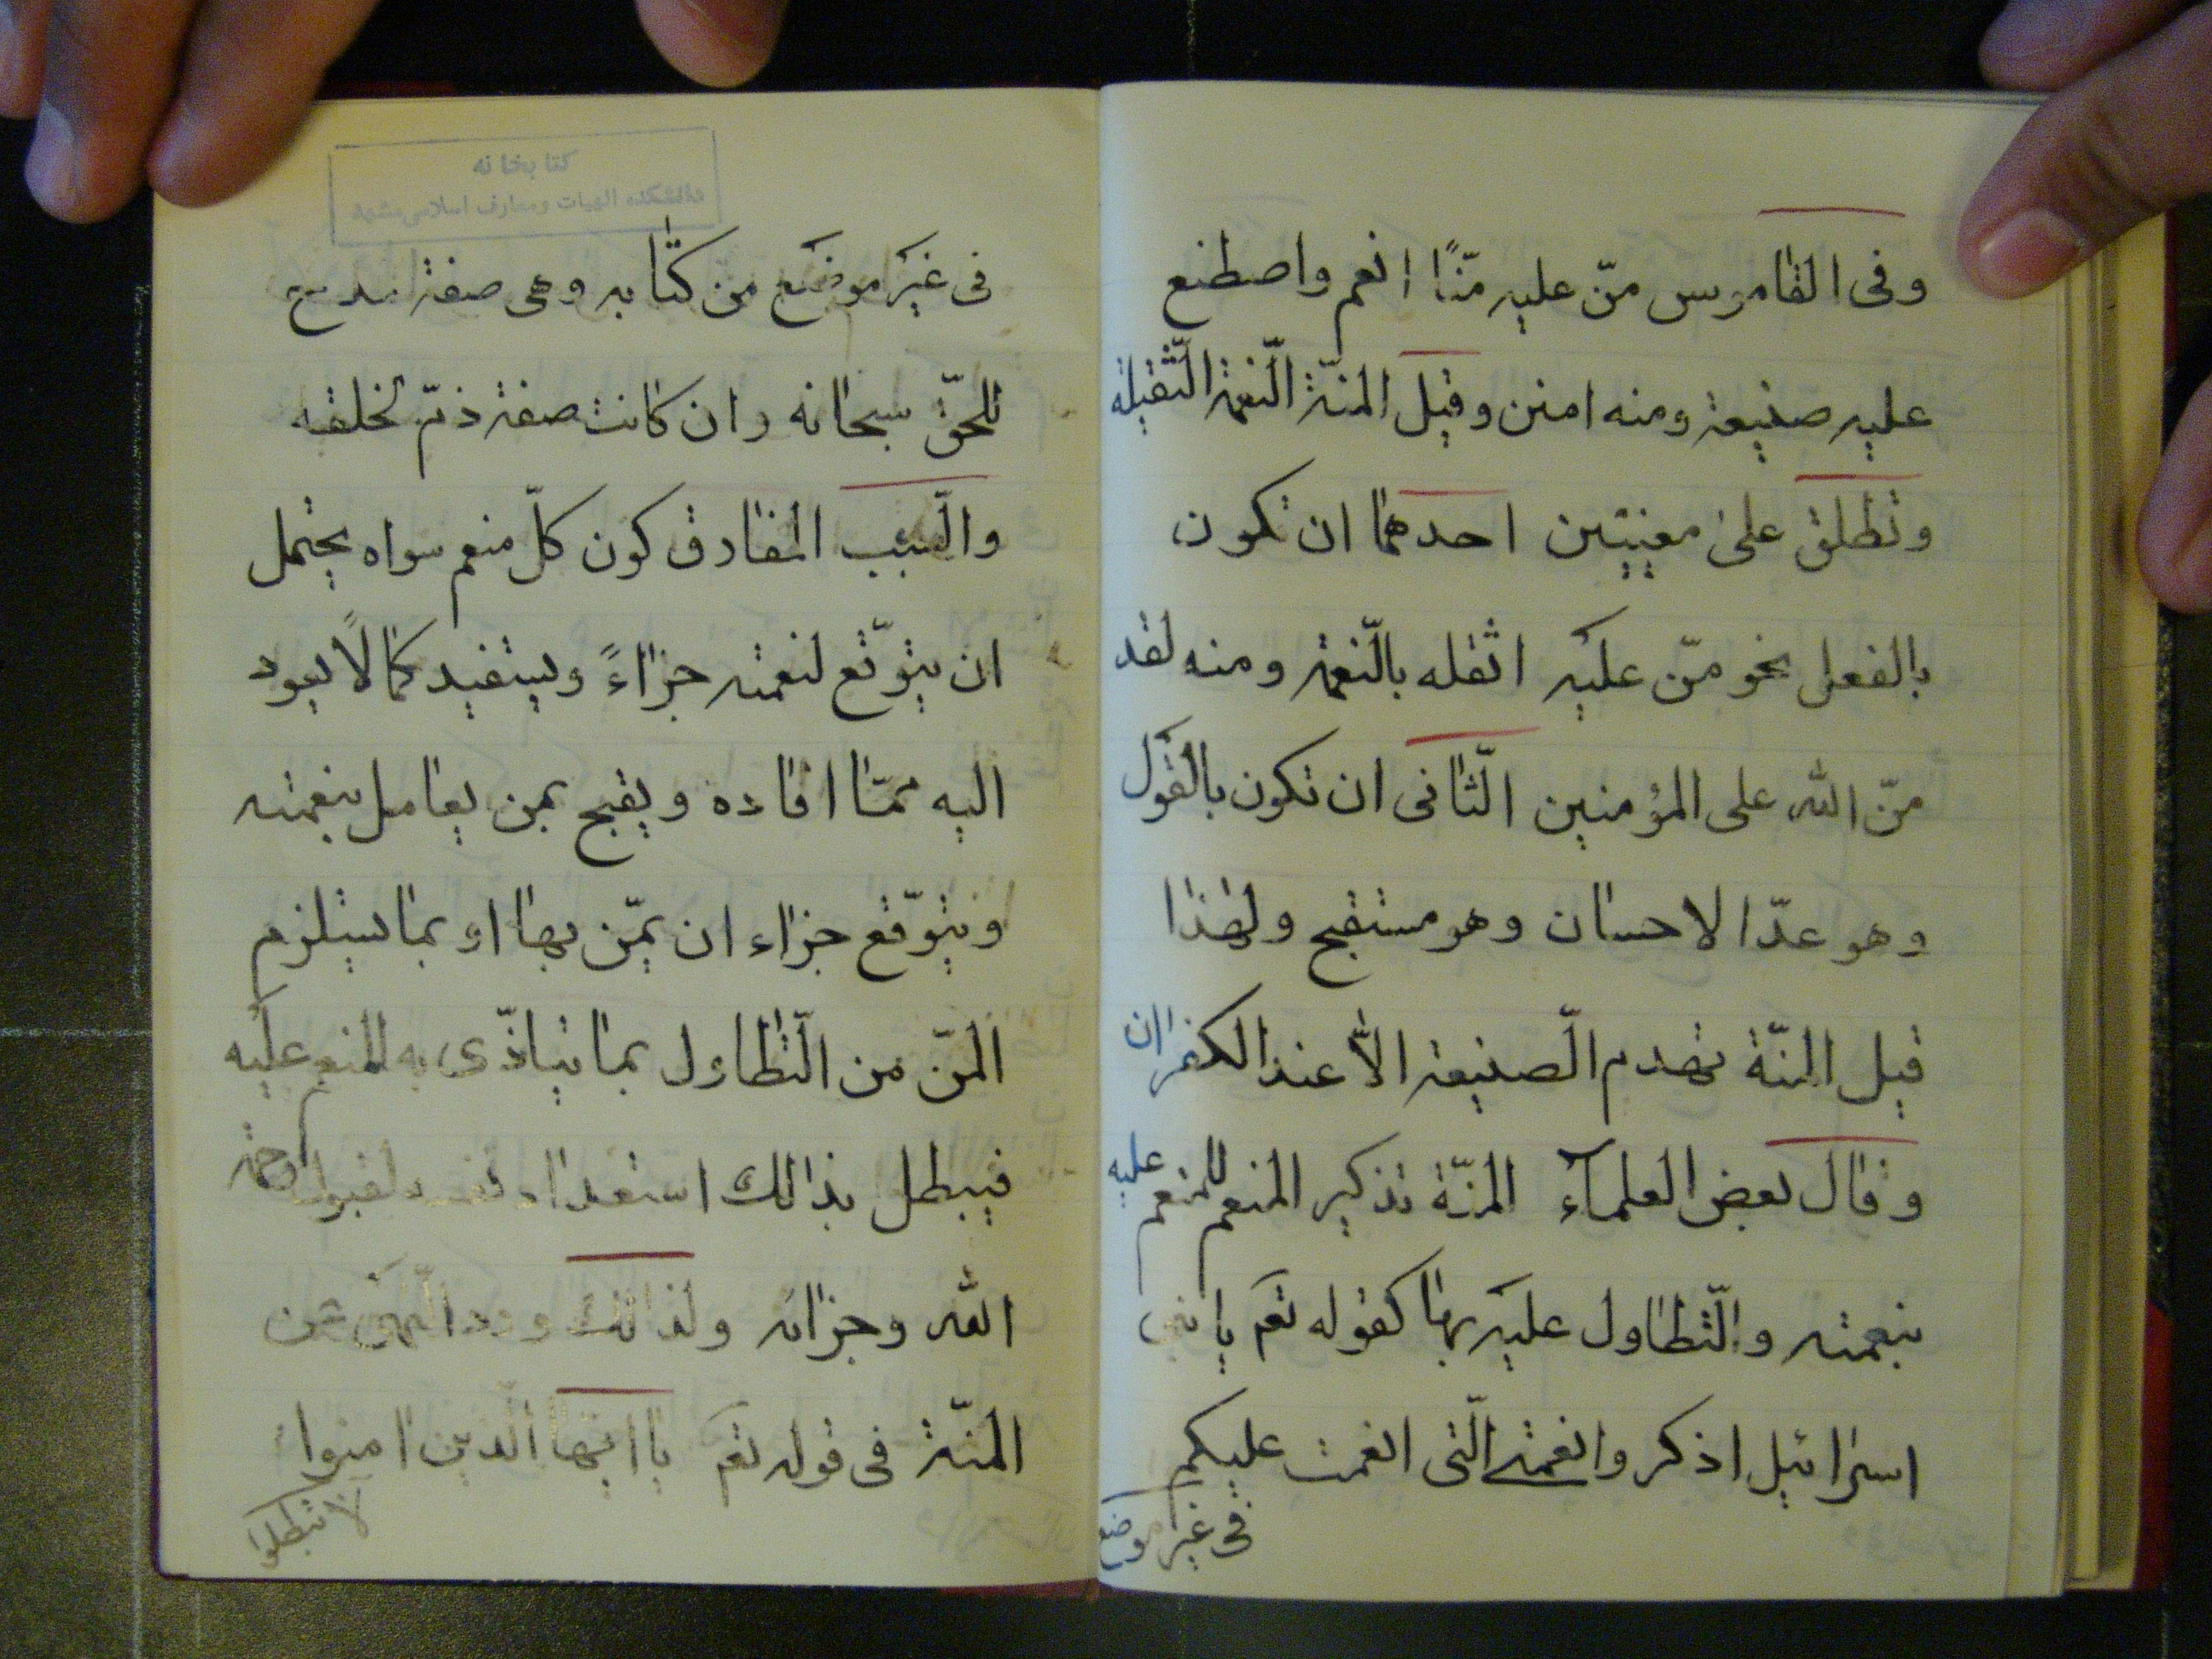 وفی القاموس منّ علیه منّاً انعم واصطنع
علیه صنیعة ومنه امتن وقیل المنّة النّعمة الثّقیلة
وتطلق علیٰ معنیین احدهما ان تکون
بالفعل نحو منّ علیه اثقله بالنّعمة ومنه لقد
منّ الله علی المؤمنین الثّانی ان تکون بالقول
وهو عدّ الاحسان وهو مستقبح ولهذا
قیل المنّة تهدم الصّنیعة الّا عند الکفران
وقال بعض العلمآء المنّة تذکیر المنعم للمنعم علیه
بنعمته والتّطاول علیه بها کقوله تعم یا بنی
اسرائیل اذکروا نعمتی الّتی انعمت علیکم
فی غیر موضع
کتابخانه
دانشکده الهیات ومعارف اسلامی مشهد
فی غیر موضع من کتابه وهی صفة مدح
للحقّ سبحانه وان کانت صفة ذمّ لخلقه
والسّبب الفارق کون کلّ منعم سواه یحتمل
ان یتوّقع لنعمته جزاءً ویستفید کمالاً یعود
الیه ممّا افاده ویقبح بمن یعامل بنعمته
ویتوّقع جزاء ان یمّن بها او بما یستلزم
المنّ من التّطاول بما یتاذّی به المنعم علیه
فیبطل بذالك استعداد نفسه لقبول رحمة
الله وجزائه ولذالك ورد النّهی عن
المنّة فی قوله تعم یا ایها الّذین امنوا
لا تبطلوا